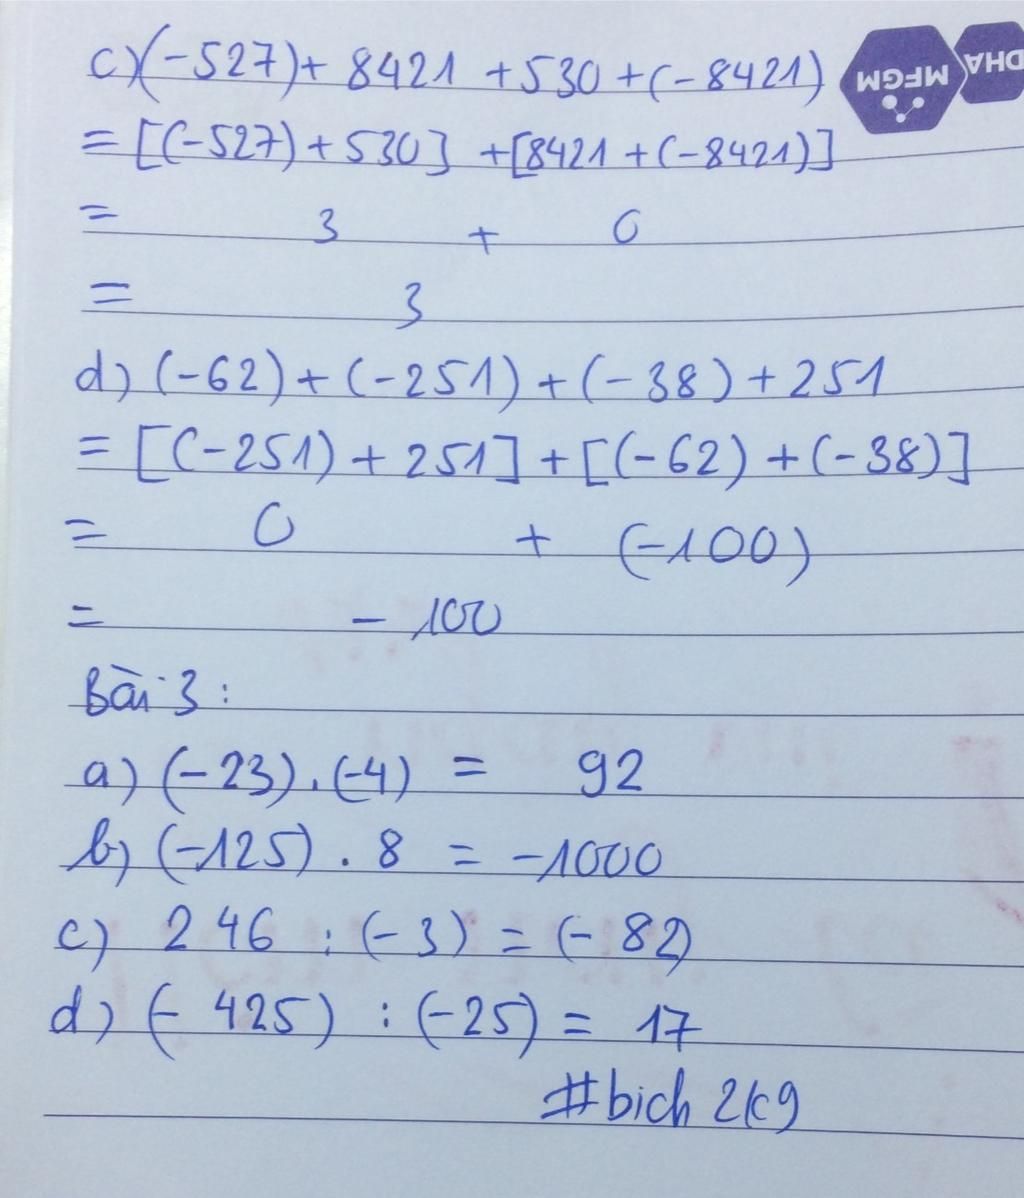 c) (-527) + 8421 + 530 + (-8421)
= [(-527) + 530] + [8421 + (-8421)]
= 3 + 0
= 3
d) (-62) + (-251) + (-38) + 251
= [(-251) + 251] + [(-62) + (-38)]
= 0 + (-100)
= - 100
Bài 3 :
a) (-23) . (-4) = 92
b) (-125) . 8 = -1000
c) 246 : (-3) = (- 82)
d) (- 425) : (-25) = 17
#bich 2k9
DHA
MFGM